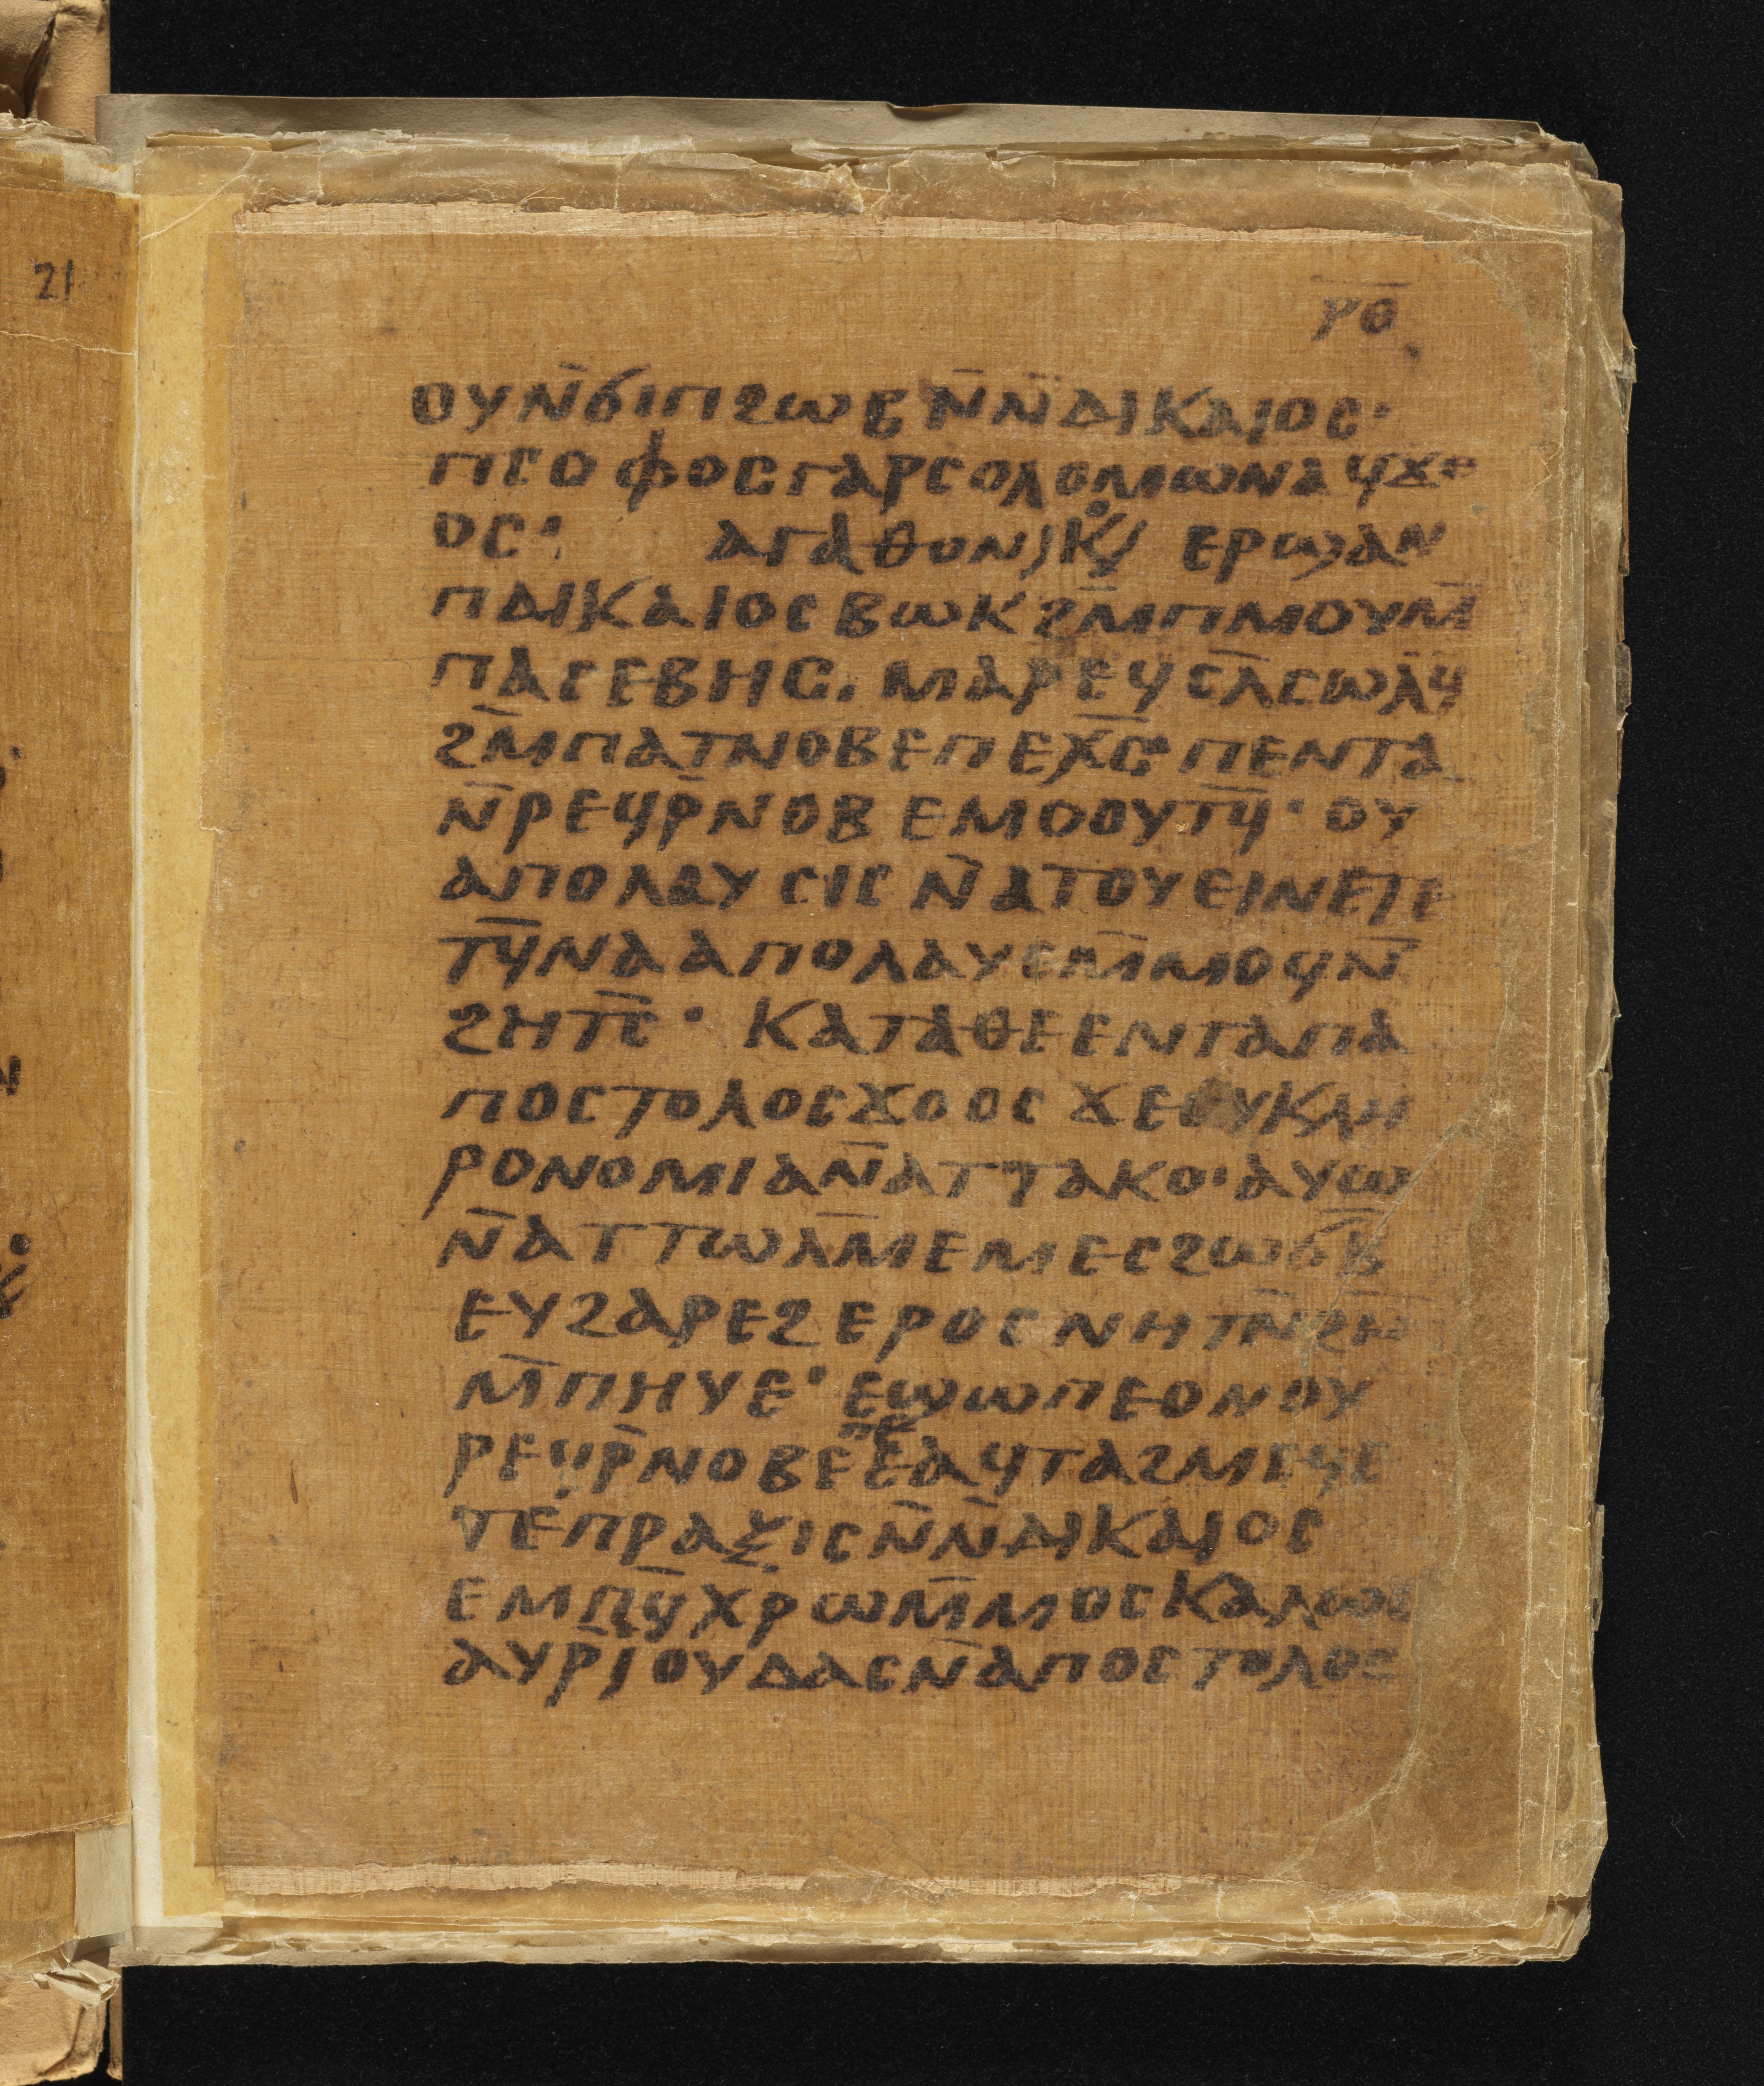 21
ⲣⲑ
ⲟⲩⲛ̄ϭⲓⲡϩⲱⲃⲛ̄ⲛ̄ⲇⲓⲕⲁⲓⲟⲥ·
ⲡⲥⲟⲫⲟⲥⲅⲁⲣⲥⲟⲗⲟⲙⲱⲛⲁϥϫⲟ
ⲟⲥ· ⲁⲅⲁⲑⲟⲛⲓⲕⲟⲥ ⲉⲣϣⲁⲛ
ⲡⲇⲓⲕⲁⲓⲟⲥⲃⲱⲕϩⲙ̄ⲡⲙⲟⲩⲙ̄
ⲡⲁⲥⲉⲃⲏⲥ. ⲙⲁⲣⲉϥⲥⲗ̄ⲥⲱⲗϥ̄
ϩⲙ̄ⲡⲁⲧⲛⲟⲃⲉⲡⲉⲭ̄ⲥ̄ⲡⲉⲛⲧⲁ
ⲛ̄ⲣⲉϥⲣ̄ⲛⲟⲃⲉⲙⲟⲟⲩⲧϥ̄· ⲟⲩ
ⲁⲡⲟⲗⲁⲩⲥⲓⲥⲛ̄ⲁⲧⲟⲩⲉⲓⲛⲉⲧⲉ
ⲧϥ̄ⲛⲁⲁⲡⲟⲗⲁⲩⲉⲙ̄ⲙⲟϥⲛ̄
ϩⲏⲧⲥ̄· ⲕⲁⲧⲁⲑⲉⲉⲛⲧⲁⲡⲁ
ⲡⲟⲥⲧⲟⲗⲟⲥϫⲟⲟⲥϫⲉⲟⲩⲕⲗⲏ
ⲣⲟⲛⲟⲙⲓⲁⲛ̄ⲁⲧⲧⲁⲕⲟ·ⲁⲩⲱ
ⲛ̄ⲁⲧⲧⲱⲗⲙ̄ⲉⲙⲉⲥϩⲱϭⲃ̄
ⲉⲩϩⲁⲣⲉϩⲉⲣⲟⲥⲛⲏⲧⲛ̄ϩⲛ̄
ⲙ̄ⲡⲏⲩⲉ· ⲉϣⲱⲡⲉⲟⲛⲟⲩ
ⲣⲉϥⲣ̄ⲛⲟⲃⲉⲡⲉⲉⲁϥⲧⲁϩⲙⲉϥⲉ
ⲧⲉⲡⲣⲁⲝⲓⲥⲛ̄ⲛ̄ⲇⲓⲕⲁⲓⲟⲥ
ⲉⲙⲡϥ̄ⲭⲣⲱⲙ̄ⲙⲟⲥⲕⲁⲗⲱⲥ
ⲁⲩⲣ̄ⲓⲟⲩⲇⲁⲥⲛ̄ⲁⲡⲟⲥⲧⲟⲗⲟⲥ